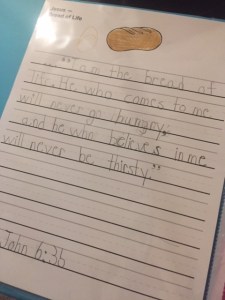 Jesus =
Bread of Life
"I am the bread of
life. He who comes to me
will never go hungry,
and he who believes in me
will never be thirsty."
John 6:35